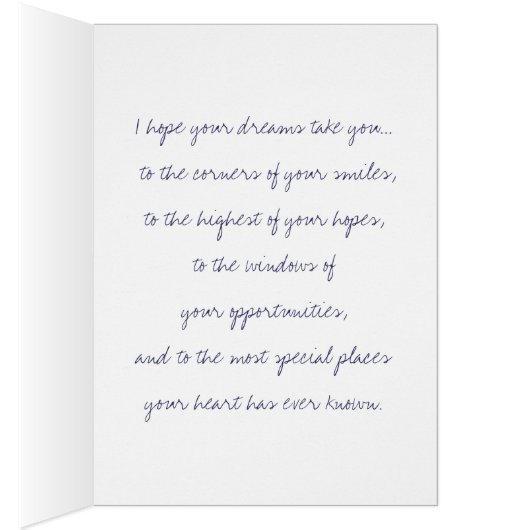 I hope your dreams take you...
to the corners of your smiles,
to the highest of your hopes,
to the windows of
your opportunities,
and to the most special places
your heart has ever known.